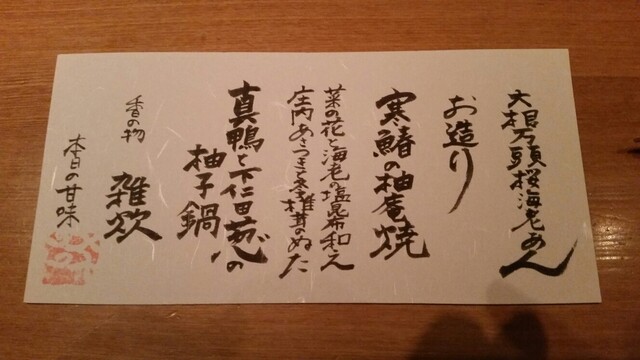 大根万頭桜海老あん
お造り
寒鰆の柚庵焼
菜の花と海老の塩昆布和え
庄内あさつきと椎茸のぬた
真鴨と下仁田葱の
柚子鍋
香の物
雑炊
本日の甘味